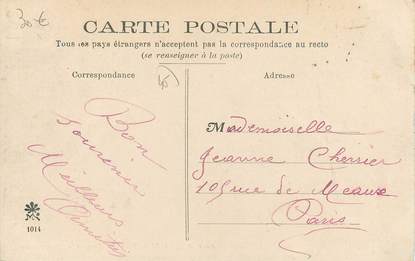 30 €
CARTE POSTALE
Tous les pays étrangers n'acceptent pas la correspondance au recto
(se renseigner à la poste)
Correspondance
Adresse
Bon
souvenir
Meilleurs
Amitiés
Mademoiselle
Jeanne Cherrier
105 rue de Meaux
Paris
1014